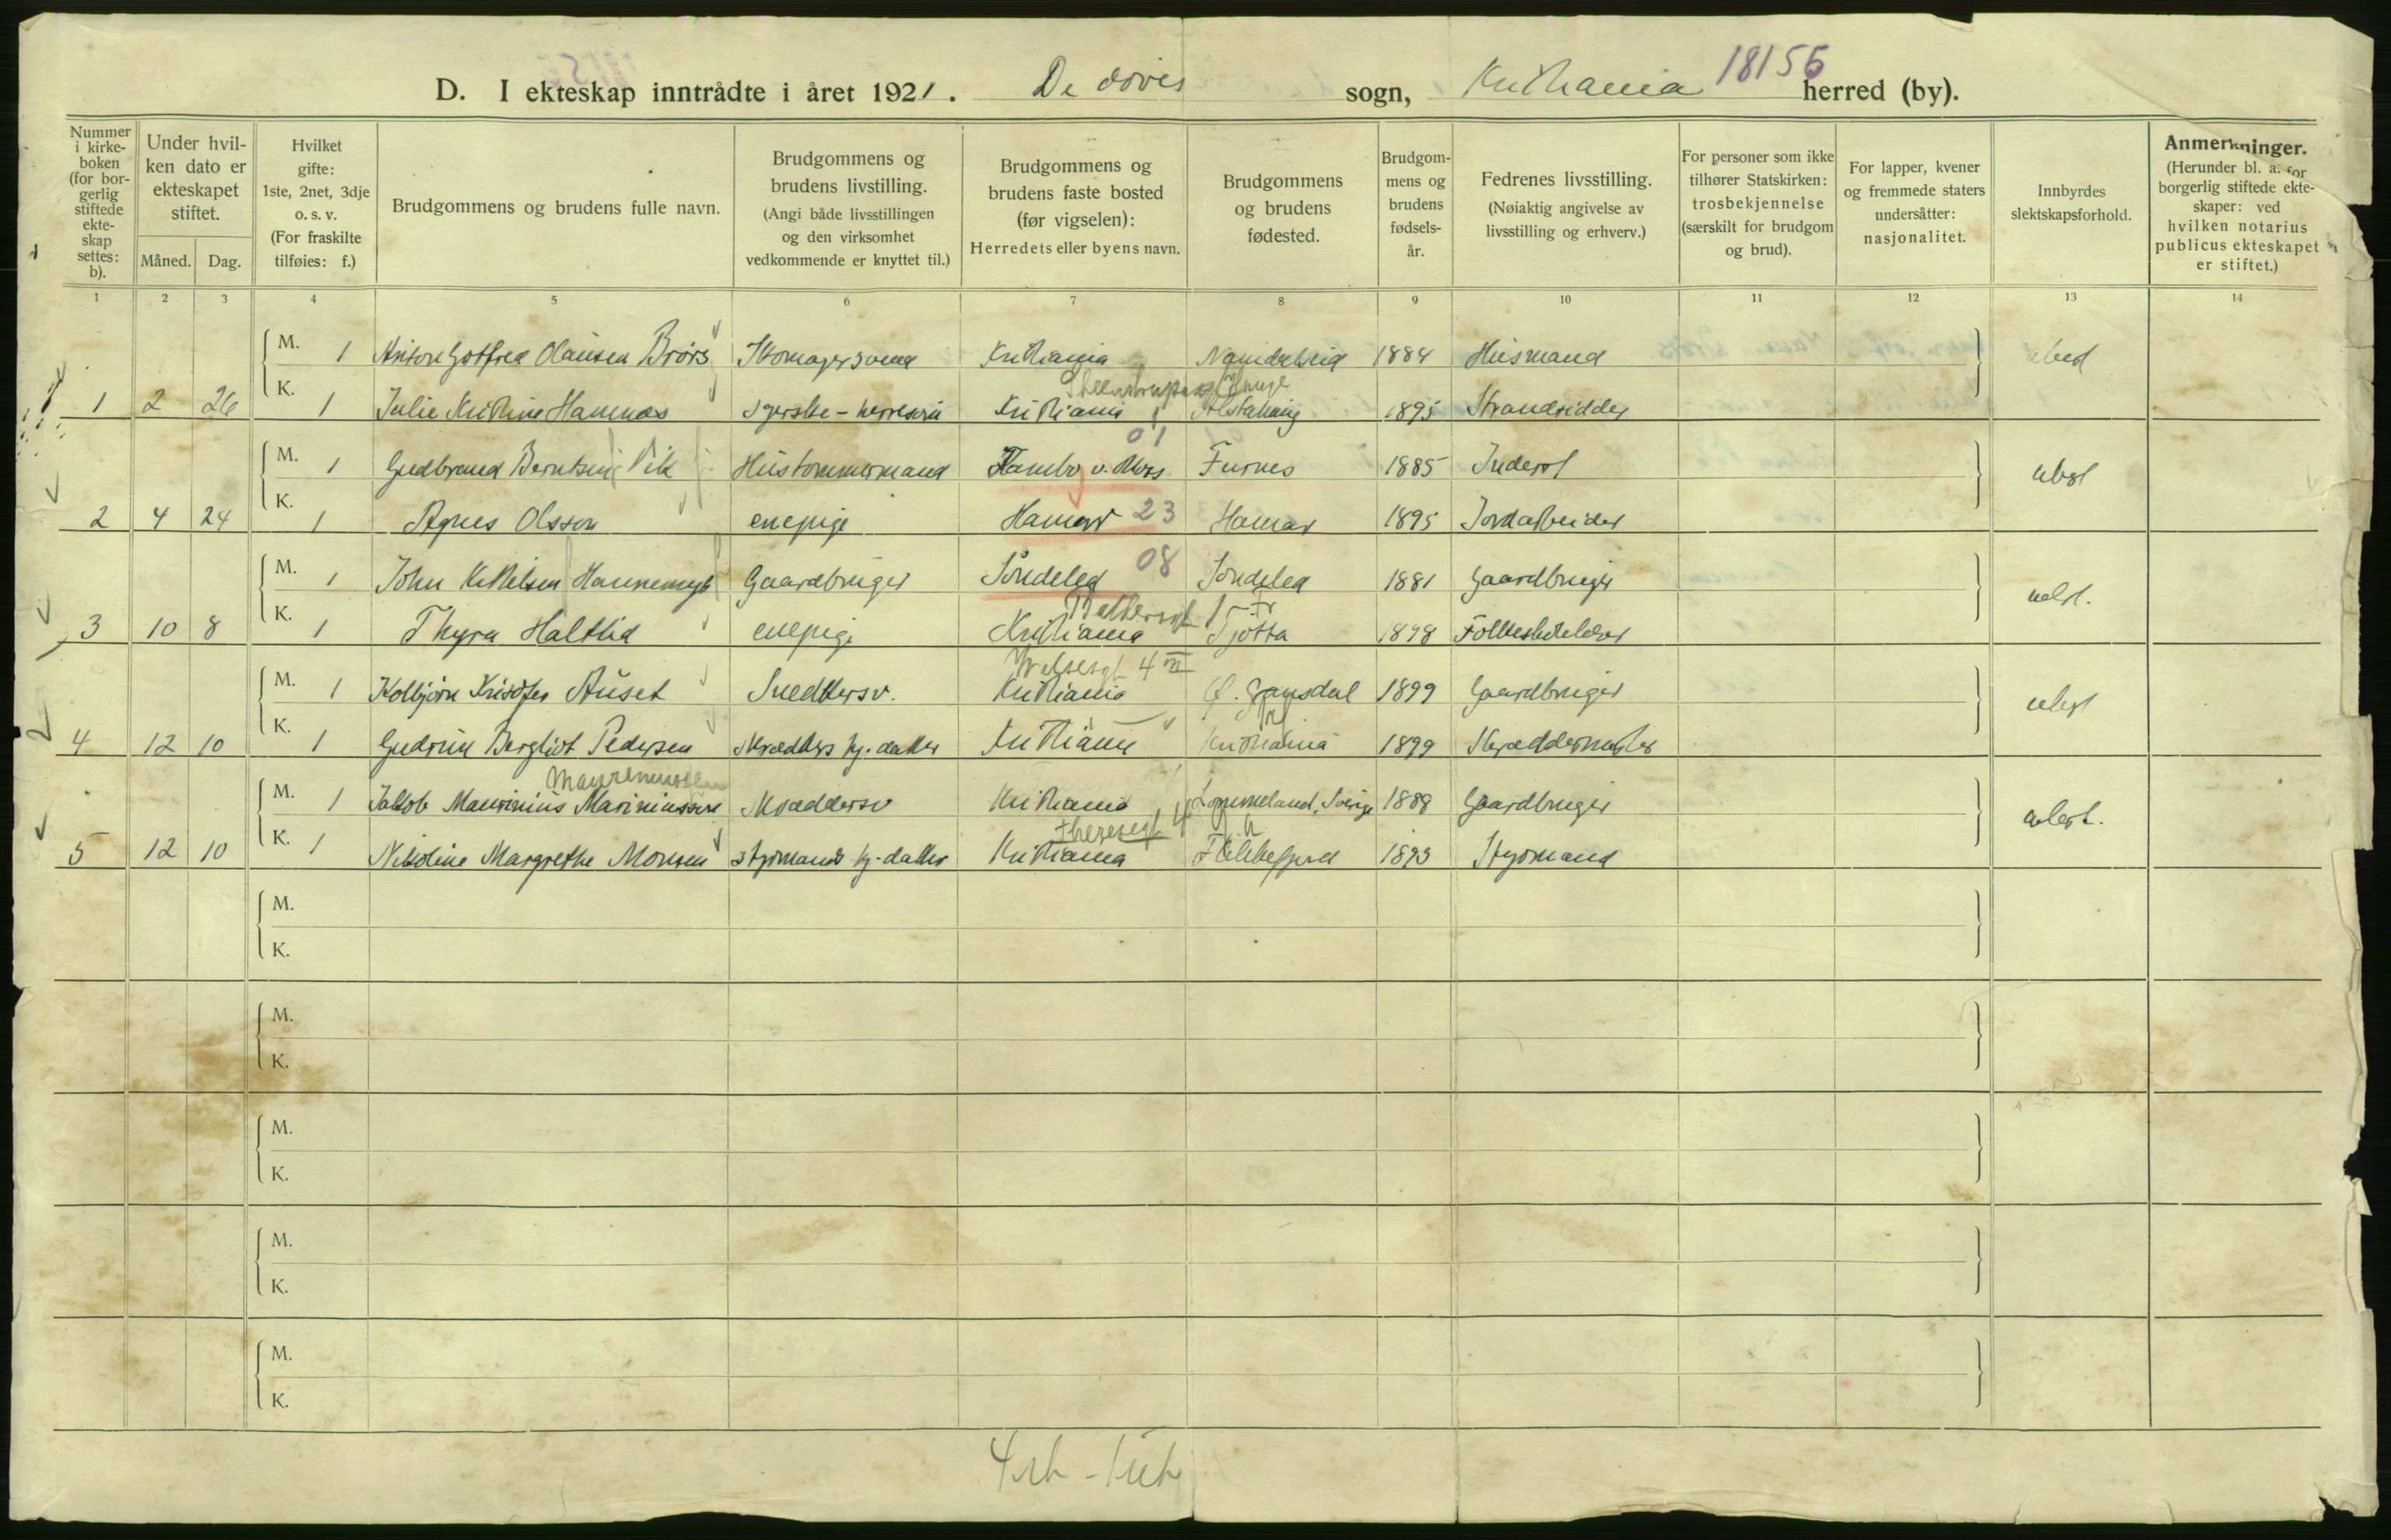 18156
D. I ekteskap inntrådte i året 1921. De døves sogn, Kristiania herred (by).
Nummer i kirke-boken (for bor-gerlig stiftede ekte-skap settes: b).
Under hvil-ken dato er ekteskapet stiftet.
Måned. Dag.
Hvilket gifte: 1ste, 2net, 3dje o. s. v. (For fraskilte tilføies: f.)
Brudgommens og brudens fulle navn.
Brudgommens og brudens livstilling. (Angi både livsstillingen og den virksomhet vedkommende er knyttet til.)
Brudgommens og brudens faste bosted (før vigselen): Herredets eller byens navn.
Brudgommens og brudens fødested.
Brudgom-mens og brudens fødsels-år.
Fedrenes livsstilling. (Nøiaktig angivelse av livsstilling og erhverv.)
For personer som ikke tilhører Statskirken: trosbekjennelse (særskilt for brudgom og brud).
For lapper, kvener og fremmede staters undersåtter: nasjonalitet.
Innbyrdes slektskapsforhold.
Anmerkninger. (Herunder bl. a. for borgerlig stiftede ekte-skaper: ved hvilken notarius publicus ekteskapet er stiftet.)
1 2 3 4 5 6 7 8 9 10 11 12 13 14
M. 1 Anton Gotfred Olausen Brørs Skomagersvend Kristiania Namdalseid 1884 Husmand ubesl
1 2 26 K. 1 Julie Kristine Hamnes syerske - Kristiania Alstahaug 1895 Strandsidder
01
M. 1 Gudbrand Berntsen Vik Hustømmermand Kambo v. Moss Furnes 1885 Inderst ubesl
2 4 24 K. 1 Agnes Olsson enepige Hamar 23 Hamar 1895 Jordarbeider
M. 1 John Kittelsen Hannemyr Gaardbruger Søndeled 08 Søndeled 1881 Gaardbruger ubesl.
3 10 8 K. 1 Thyra Haltlid enepige Kristiania Tjøtta 1898 Folkeskolelærer
4 III
M. 1 Kolbjørn Kristofer Auset Snedkersv. Kristiania 1899 Gaardbruger ubesl
4 12 10 K. 1 Gudrun Bergliot Pedersen skrædders hj. datter Kristiania Kristiania 1899 Skræddermester
M. 1 Jakob Maurinius Mariniussen Skræddersv Kristiania Lommeland, Sverige 1888 Gaardbruger ubesl.
Theresegt
5 12 10 K. 1 Nikoline Margrethe Monsen styrmands hj. datter Kristiania Flekkefjord 1893 Styrmand
M.
K.
M.
K.
M.
K.
M.
K.
M.
K.